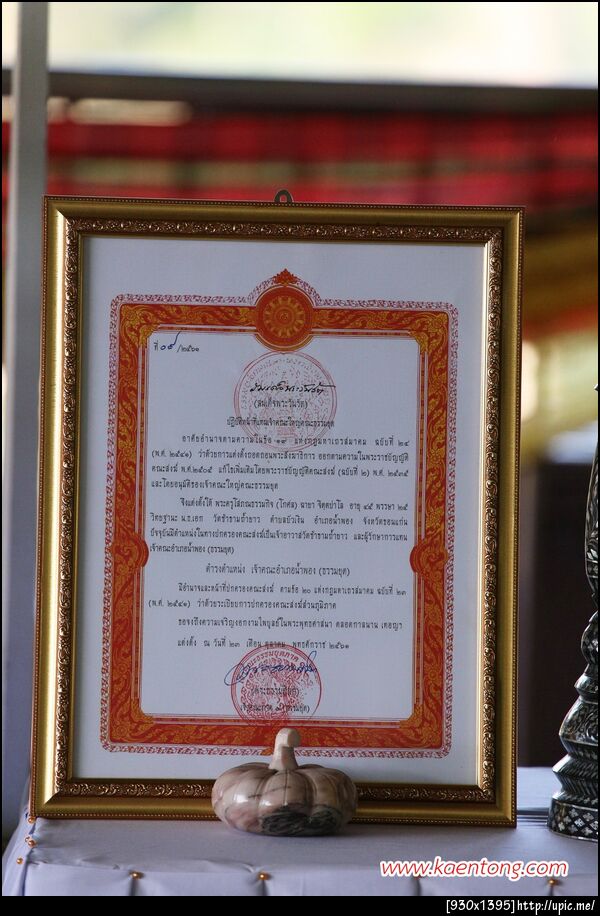 ที่ ๐๙/๒๕๖๑
(สมเด็จพระวันรัต)
ปฏิบัติหน้าที่แทนเจ้าคณะใหญ่คณะธรรมยุต
อาศัยอำนาจตามความในข้อ แห่งกฎมหาเถรสมาคม ฉบับที่ ๒๔
(พ.ศ. ๒๕๔๑) ว่าด้วยการแต่งตั้งถอดถอนพระสังฆาธิการ ออกตามความในพระราชบัญญัติ
คณะสงฆ์ พ.ศ.๒๕๐๕ แก้ไขเพิ่มเติมโดยพระราชบัญญัติคณะสงฆ์ (ฉบับที่ ๒) พ.ศ. ๒๕๓๕
และโดยอนุมัติของเจ้าคณะใหญ่คณะธรรมยุต
จึงแต่งตั้งให้ พระครูโสภณธรรมกิจ (โกศล) ฉายา จิตฺตปาโล อายุ ๔๕ พรรษา ๒๕
วิทยฐานะ น.ธ.เอก วัดชำธามถ้ำยาว ตำบลบัวเงิน อำเภอน้ำพอง จังหวัดขอนแก่น
ปัจจุบันมีตำแหน่งในทางปกครองคณะสงฆ์เป็นเจ้าอาวาสวัดชำธามถ้ำยาว และผู้รักษาการแทน
เจ้าคณะอำเภอน้ำพอง (ธรรมยุต)
ดำรงตำแหน่ง เจ้าคณะอำเภอน้ำพอง (ธรรมยุต)
มีอำนาจและหน้าที่ปกครองคณะสงฆ์ ตามข้อ ๒๐ แห่งกฎมหาเถรสมาคม ฉบับที่ ๒๓
(พ.ศ. ๒๕๔๑) ว่าด้วยระเบียบการปกครองคณะสงฆ์ส่วนภูมิภาค
ขอจงถึงความเจริญงอกงามไพบูลย์ในพระพุทธศาสนา ตลอดกาลนาน เทอญฯ
แต่งตั้ง ณ วันที่ ๒๓ เดือน ตุลาคม พุทธศักราช ๒๕๖๑
www.kaentong.com
[930x1395]http://upic.me/